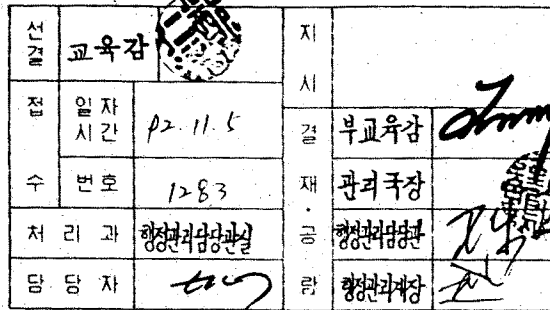 선결 교육감 지시
접수 일자 시간 92. 11. 5 결재·공람 부교육감
번호 1283 관리국장
처리과 행정관리담당관실 행정관리담당관
담당자 행정관리계장